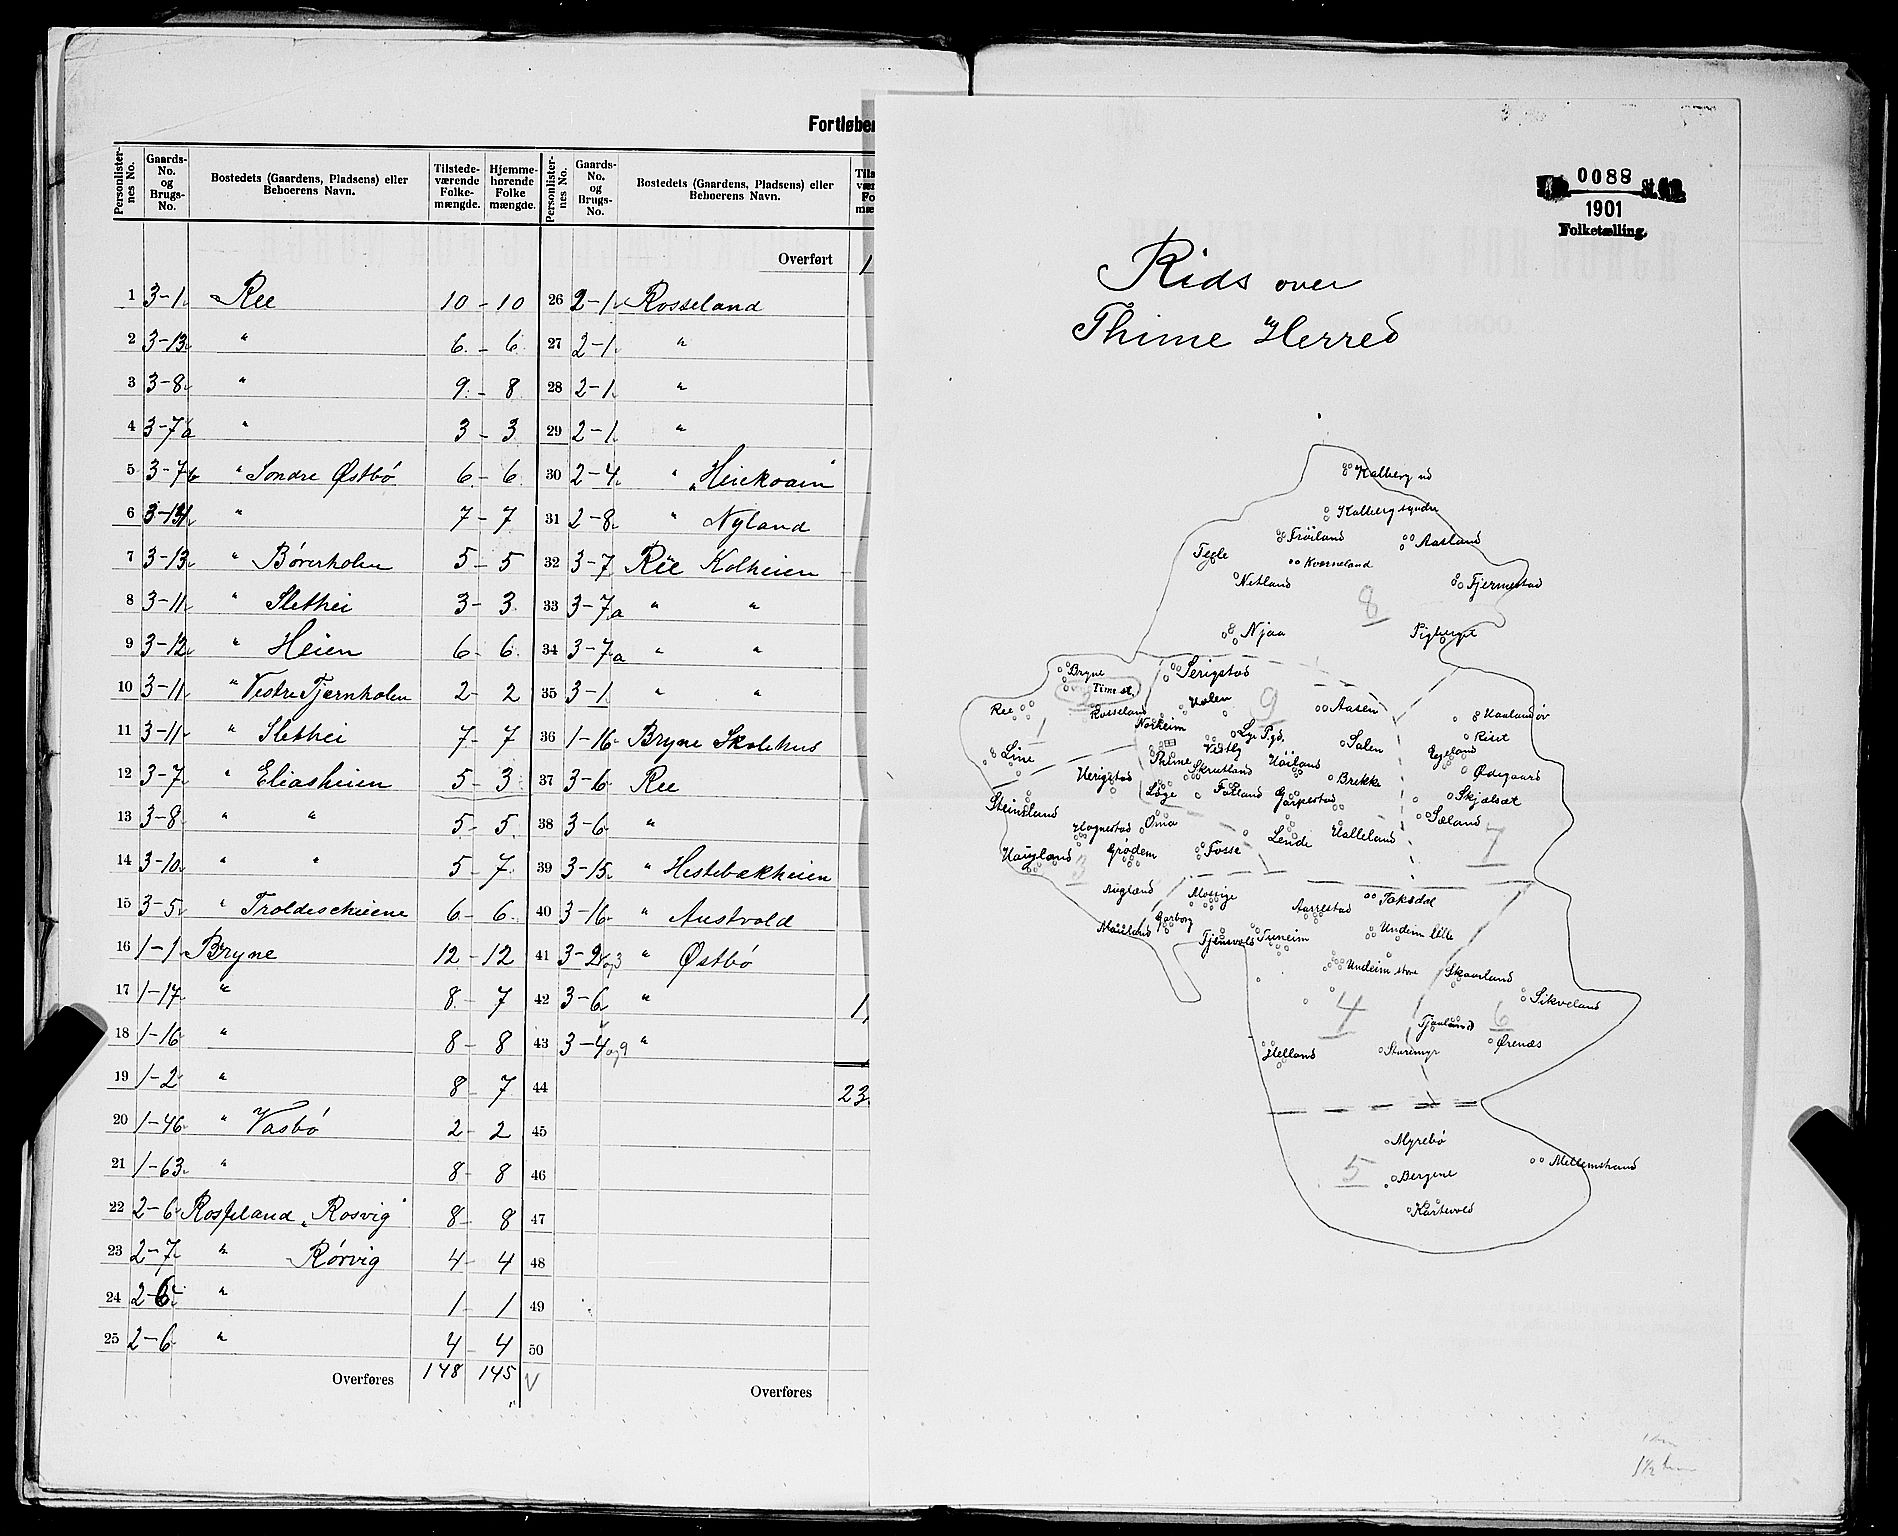 Fortløbe
Personlister-nes No.
Gaards-No. og Brugs-No.
Bostedets (Gaardens, Pladsens) eller Beboerens Navn.
Tilstede-værende Folke-mængde.
Hjemme-hørende Folke mængde.
Personlister-nes No.
Gaards-No. og Brugs-No.
Bostedets (Gaardens, Pladsens) eller Beboerens Navn.
Overført 1
1 3-1 Ree 10 - 10
2 3-13 " 6 - 6
3 3-8 " 9 - 8
4 3-7a " 3 - 3
5 3-7b " Søndre Østbø 6 - 6
6 " 7 - 7
7 3-13 " 5 - 5
8 3-11 " Slethei 3 - 3
9 3-12 " Heien 6 - 6
10 3-11 " Vestre Tjernholen 2 - 2
11 3-11 " Slethei 7 - 7
12 3-7 " Eliasheien 5 - 3
13 3-8 " " 5 - 5
14 3-10 " " 5 - 7
15 3-5 " 6 - 6
16 1-1 Bryne 12 - 12
17 1-17 " 8 - 7
18 1-16 " 8 - 8
19 1-2 " 8 - 7
20 1-46 " Vasbø 2 - 2
21 1-63 " 8 - 8
22 2-6 Rosseland "Rosvig" 8 - 8
23 2-7 " Rørvig 4 - 4
24 " 1 - 1
25 2-6 " 4 - 4
Overføres 148 145
26 2-1 Rosseland
27 2-1 "
28 2-1 "
29 2-1 "
30 2-4 "
31 2-8 " Nyland
32 3-7 Ree Kolheien
33 3-7a " "
34 3-7a " "
35 3-1 " "
36 1-16 Bryne Skolehus
37 3-6 Ree
38 3-6 "
39 3-15 " Hestebækheien
40 3-16 " Austvold
41 3-2 og 3 " Østbø
42 3-6 " 1
43 3-4 og 9 "
44 23
45
46
47
48
49
50
Overføres
0088
1901
Folketælling.
Rids over
Thime Herred
Kalberg nd
Kalberg syndre
Frøiland
Aasland
Tegle
Kverneland
Netland
Fjermestad
8
Njaa
Bryne
Serigstad
2 Time st.
Ree
Rosseland
Hølen
9
Aasen
1
Norheim
Lye Pgd.
Riset
Line
Vestly
Salen
Egeland
Thime
Skrudland
Høiland
Ødegaard
Herigstad
Brekke
Løge
Fotland
Garpestad
Skjælset
Steinsland
Sæland
Hognestad
Oma
Lende
Halleland
7
Haugland
Grødem
Fosse
3
Auglænd
Mossige
Taksdal
Garborg
Aarrestad
Undeim lille
Tjensvold
Tuneim
Undeim store
Skaarland
Sikveland
4
6
Tjaaland
Ørenæs
Helland
Storemyr
Myrebø
Mellemstrand
5
Bergene
Kartevold